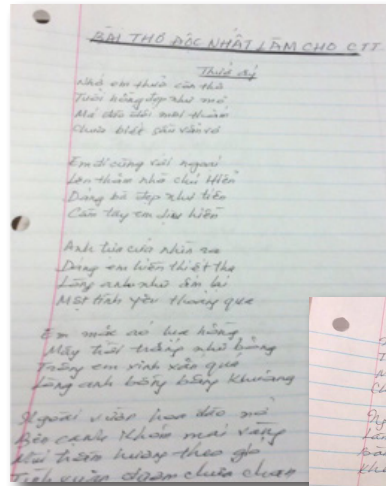 BÀI THƠ ĐỘC NHẤT LÀM CHO CTT
Thuở ấy
Nhớ em thuở còn thơ
Tuổi hồng đẹp như mơ
Má đào môi
Chưa biết sầu vẩn vơ
Em đi cùng với ngoại
Lên thăm nhà chú Hiền
Dáng bà đẹp như tiên
Cầm tay em dịu hiền
Anh cửa nhìn ra
Dáng em hiền thiết tha
Lòng anh như ấm lại
Một tình yêu thoáng qua
Em mặc áo lụa hồng
Mây trời trắng như bông
Trông em xinh xắn quá
Lòng anh bỗng bâng khuâng
Ngoài vườn hoa đào nở
Bên cạnh khóm mai vàng
hương theo gió
Tình xuân chứa chan